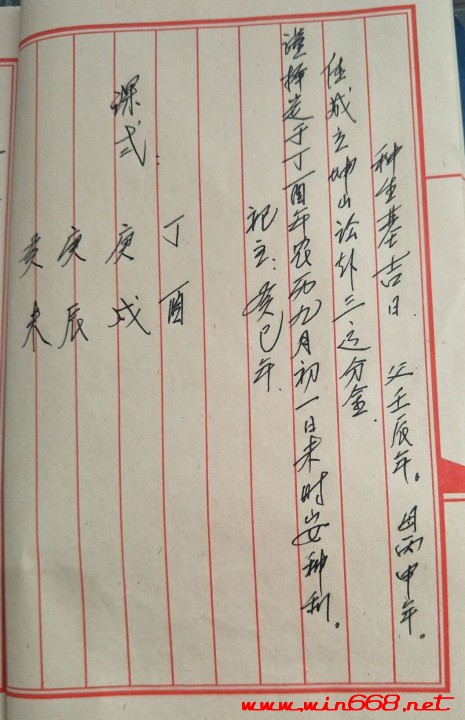 种生基吉日 父壬辰年。母丙申年。
任成立坤山论卦三运分金
谨择定于丁酉年农历九月初一日未时安种利。
祀主:癸巳年
课式:
丁酉
庚戌
庚辰
癸未
www.win668.net